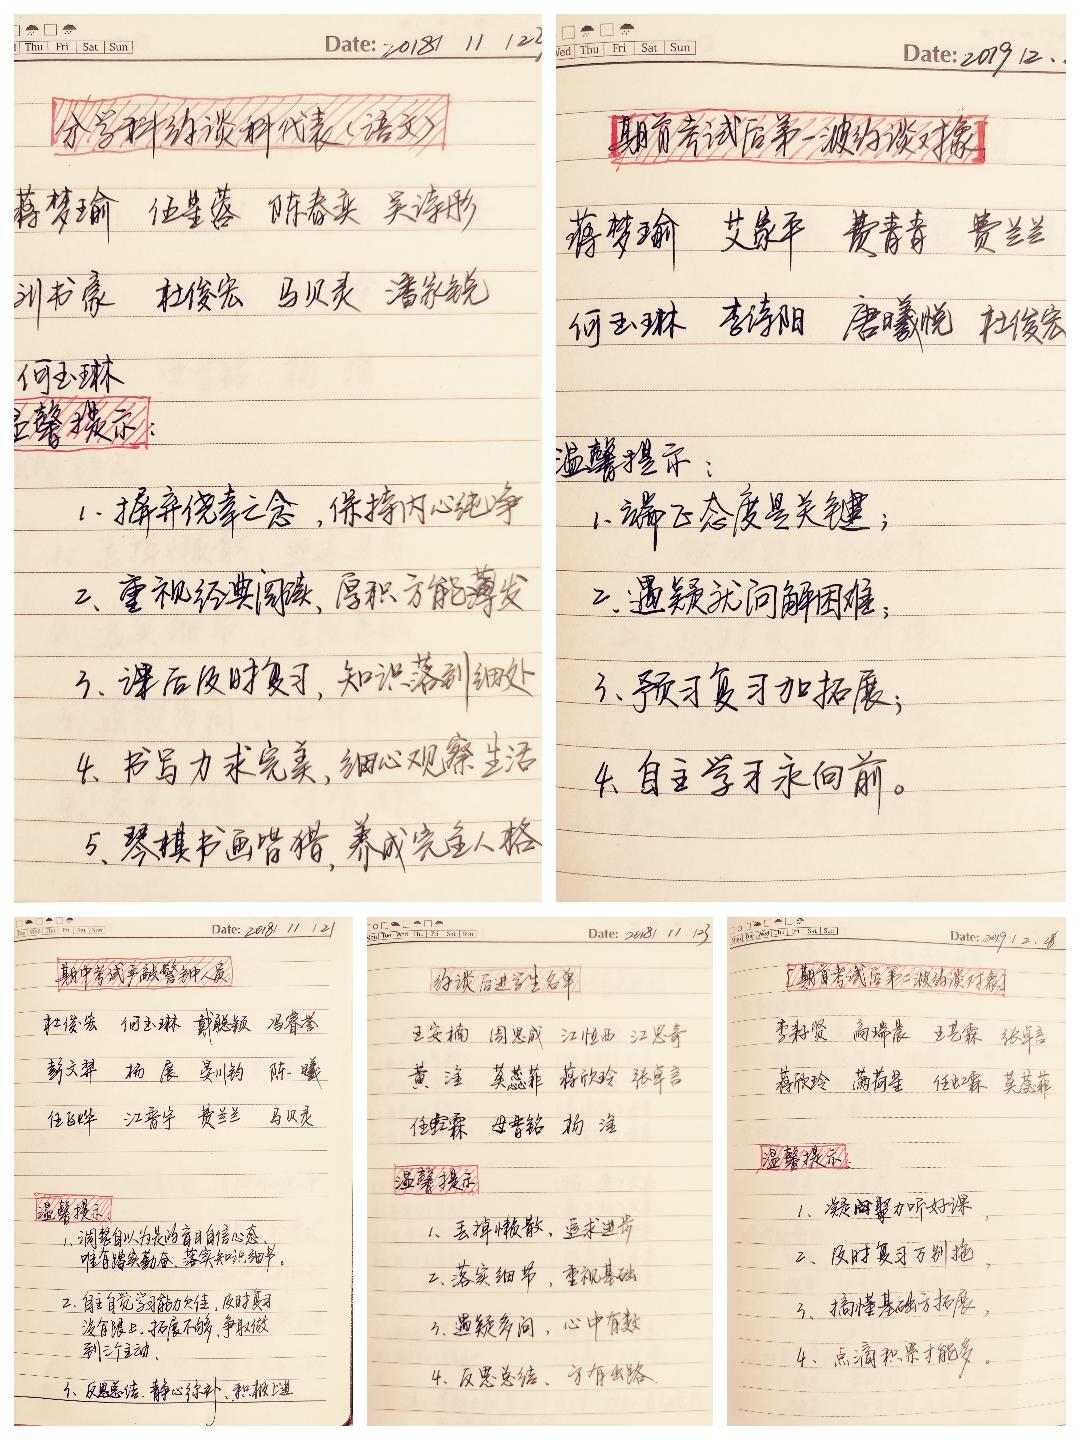 Thu Fri Sat Sun
Date: 2018 11 22
分学科约谈科代表（语文）
蒋梦瑜 伍星蓉 陈春奕 吴诗彤
刘书豪 杜俊宏 马贝灵 潘家锐
何玉琳
温馨提示：
1、摒弃侥幸之念，保持内心纯净
2、重视经典阅读，厚积方能薄发
3、课后及时复习，知识落到细处
4、书写力求完美，细心观察生活
5、琴棋书画皆猎，养成完全人格
Wed Thu Fri Sat Sun
Date: 2019 12.
期前考试后第一波约谈对像
蒋梦瑜 艾家平 费青青 费兰兰
何玉琳 李诗阳 唐曦悦 杜俊宏
温馨提示：
1、端正态度是关键；
2、遇疑就问解困难；
3、预习复习加拓展；
4、自主学习永向前。
Tue Wed Thu Fri Sat Sun
Date: 2018 11 21
期中考试严敲警钟人员
杜俊宏 何玉琳 戴聪颖 冯睿誉
彭文羿 杨展 晏川钧 陈曦
任飞烨 江晋宇 费兰兰 马贝灵
温馨提示
1、调整自以为是的盲目自信心态，
唯有踏实勤奋、落实知识细节。
2、自主自觉学习能力欠佳，及时复习
没有跟上、拓展不够，争取做
到三个主动、
3、反思总结、静心弥补、积极上进
Mon Tue Wed Thu Fri Sat Sun
Date: 2018 11 23
约谈后进学生名单
王安楠 周思成 江恒西 江思奇
黄淦 莫蕊菲 蒋欣玲 张卓言
任虹霖 母昔铭 杨淦
温馨提示
1、丢掉懒散、追求进步
2、落实细节，重视基础
3、遇疑多问，心中有数
4、反思总结、方有出路
Mon Tue Wed Thu Fri Sat Sun
Date: 2019 12.
期前考试后第二波约谈对像
李籽贤 高瑞晨 王艺霖 张卓言
蒋欣玲 蒲荷星 任虹霖 莫蕊菲
温馨提示
1、凝神聚力听好课，
2、及时复习万别拖，
3、搞懂基础方拓展，
4、点滴积累才能多。